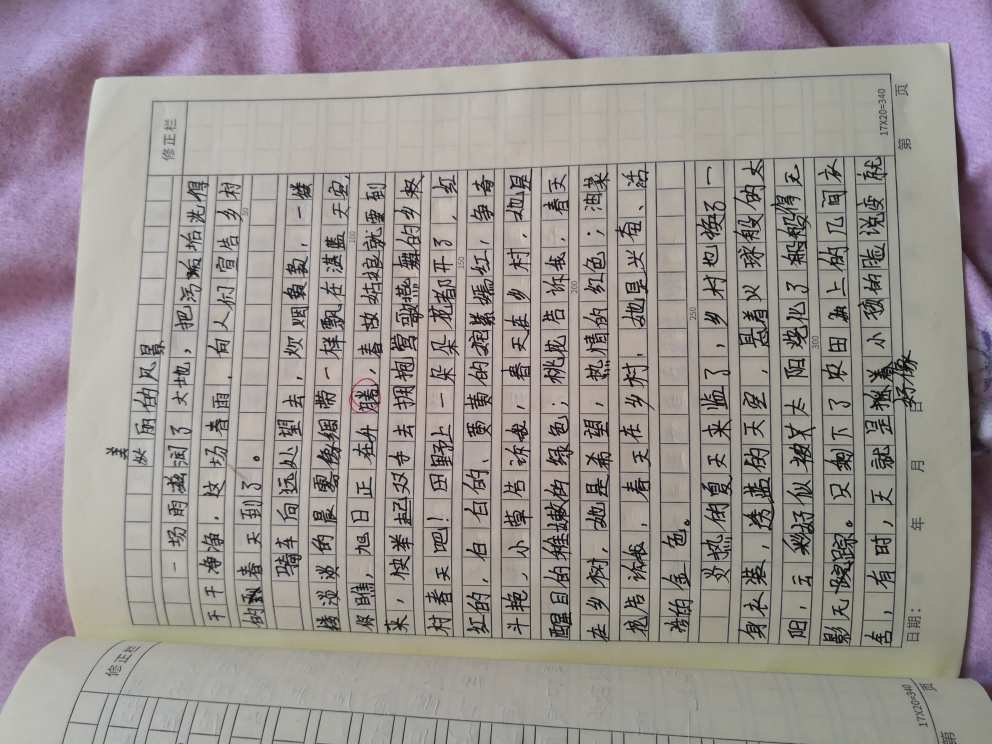 修正栏
美
丽的风景
一场雨滋润了大地，把污垢洗得
干干净净，这场春雨，向人们宣告乡村
的春天到了。
骑车向远处望去，炊烟袅袅，一缕
缕淡淡的晨雾像绸带一样飘在湛蓝天空，
你瞧，旭日正在升腾，春姑娘就要到
来，快举起双手去拥抱莺歌燕舞的乡村
村春天吧！田野上一朵朵花都开了，红
红的，白白的、黄黄的姹紫嫣红，争奇
斗艳，小草告诉我，春天在乡村，她是
醒目的稚嫩的绿色；桃花告诉我，春天
在乡村，她是希望，热情的红色；油菜
花告诉我，春天在乡村，她是兴奋、活
泼的金色。
炎热的夏天来临了，乡村也换了一
身衣装，透蓝的天空，悬着火球般的太
阳，云彩好似被太阳烧化了般般得无
影无踪。只剩下了农田上的几间农
舍，有时，天就是孩小孩的脸说变就
好像
日期： 年 月 日
17X20=340
第 页
50
100
150
200
250
300
修正栏
17X20=340
第 页